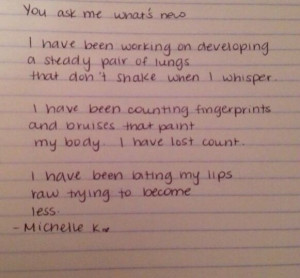 You ask me what's new
I have been working on developing
a steady pair of lungs
that don't shake when I whisper.
I have been counting fingerprints
and bruises that paint
my body. I have lost count.
I have been biting my lips
raw trying to become
less.
- Michelle K.